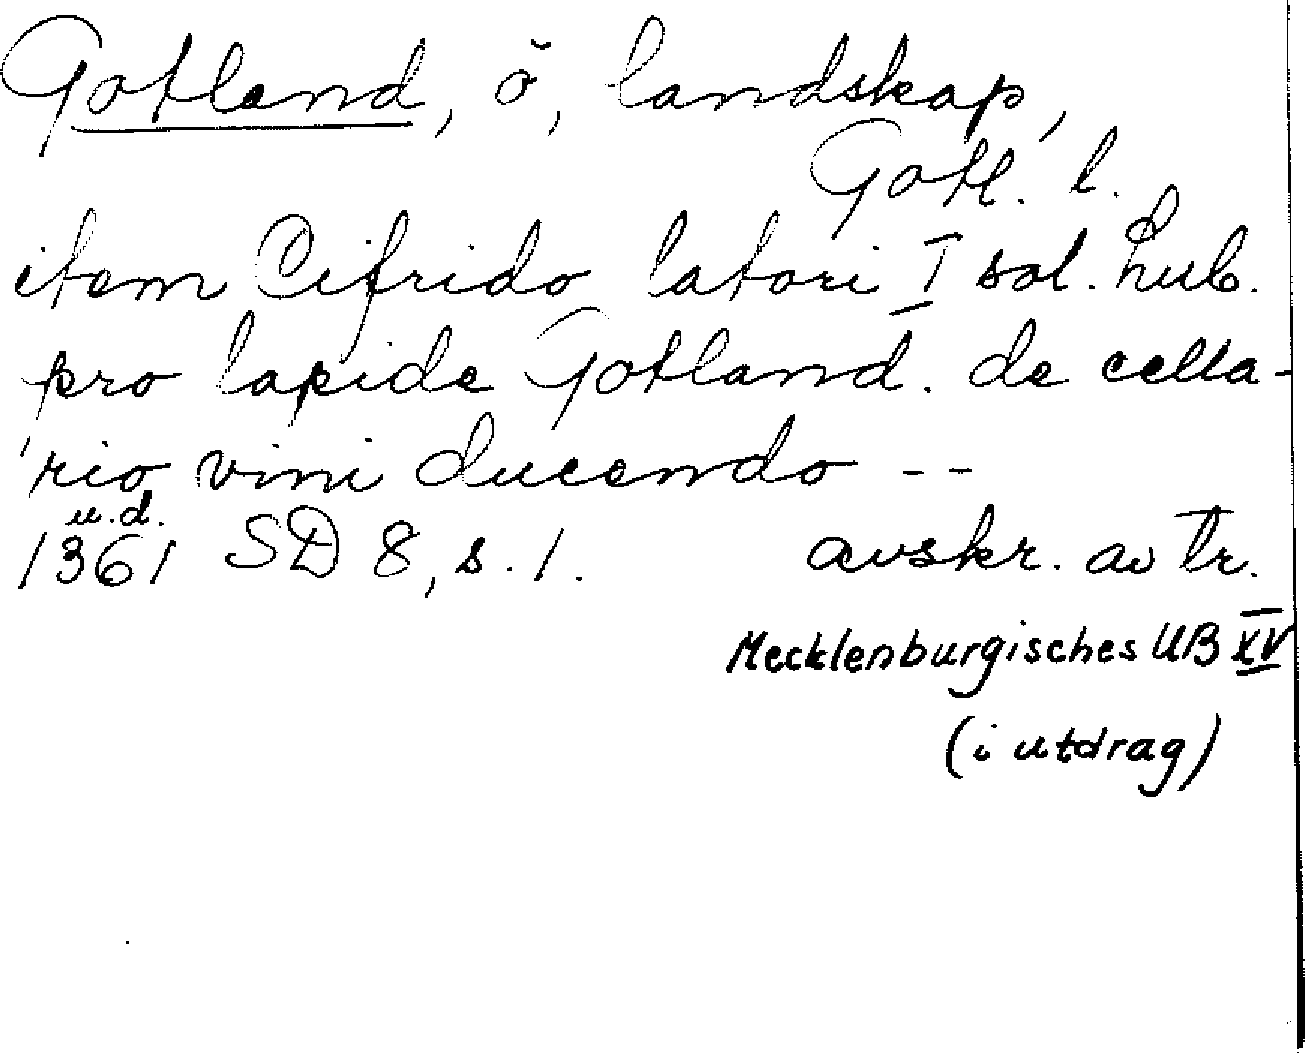 Gotland, ö, landskap,
Gotl. l.
item Cifrido latori I sol. Lub.
pro lapide Gotland. de cella-
rio vini ducendo --
u.d.
1361 SD 8, s. 1. avskr. av tr.
Mecklenburgisches UB XV
(i utdrag)